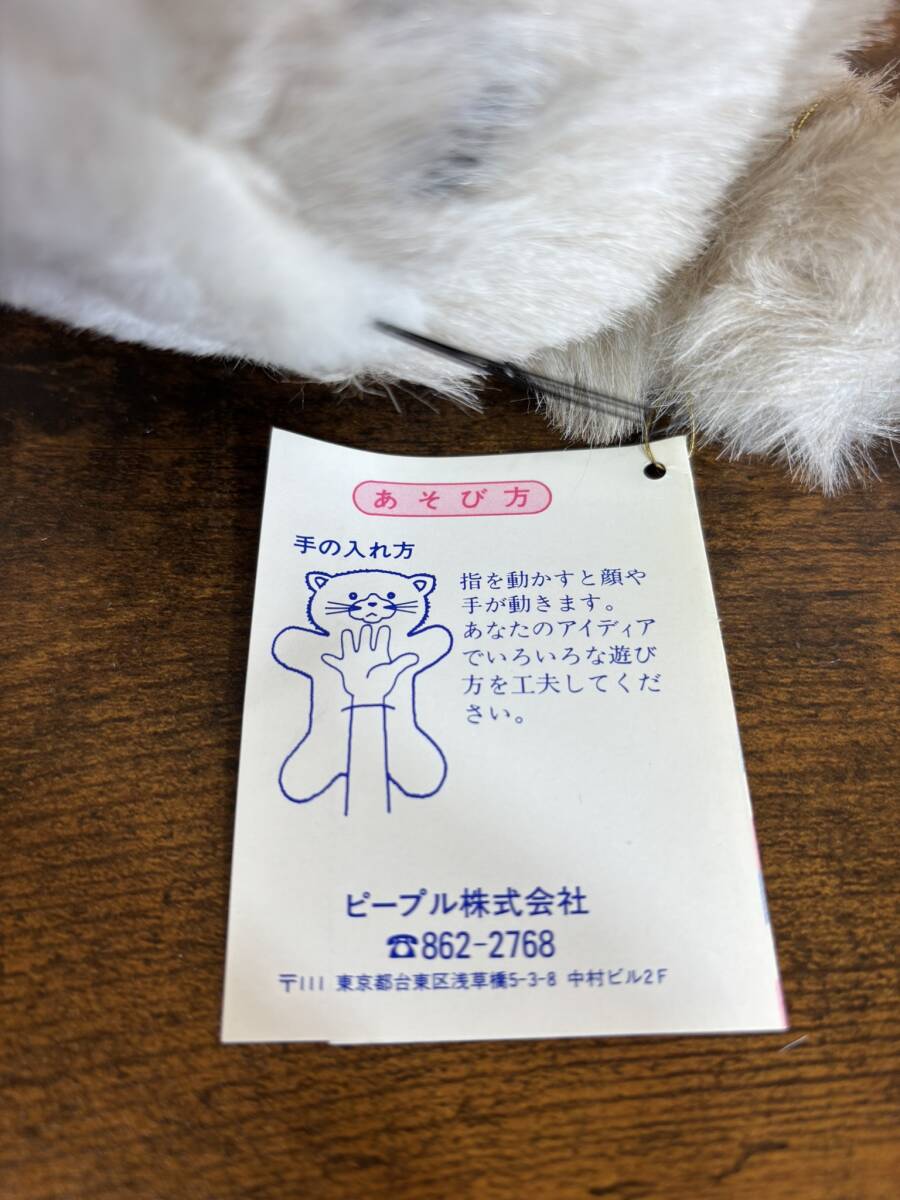 あそび方
手の入れ方
指を動かすと顔や
手が動きます。
あなたのアイディア
でいろいろな遊び
方を工夫してくだ
さい。
ピープル株式会社
☎862-2768
〒111 東京都台東区浅草橋5-3-8 中村ビル2F